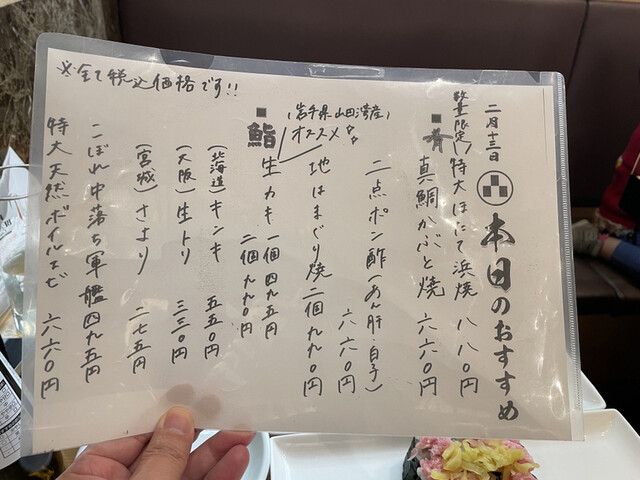 ※全て税込価格です!!
二月十三日
本日のおすすめ
数量限定!
特大ほたて浜焼 八八〇円
肴
真鯛かぶと焼 六六〇円
二点ポン酢(あん肝・白子) 六六〇円
地はまぐり焼 二個九九〇円
(岩手県山田湾産)
オススメ
生カキ 一個四九五円
二個九九〇円
鮨
(北海道)キンキ 五五〇円
(大阪)生トリ 三三〇円
(宮城)さより 二七五円
こぼれ中落ち軍艦 四九五円
特大天然ボイルエビ 六六〇円